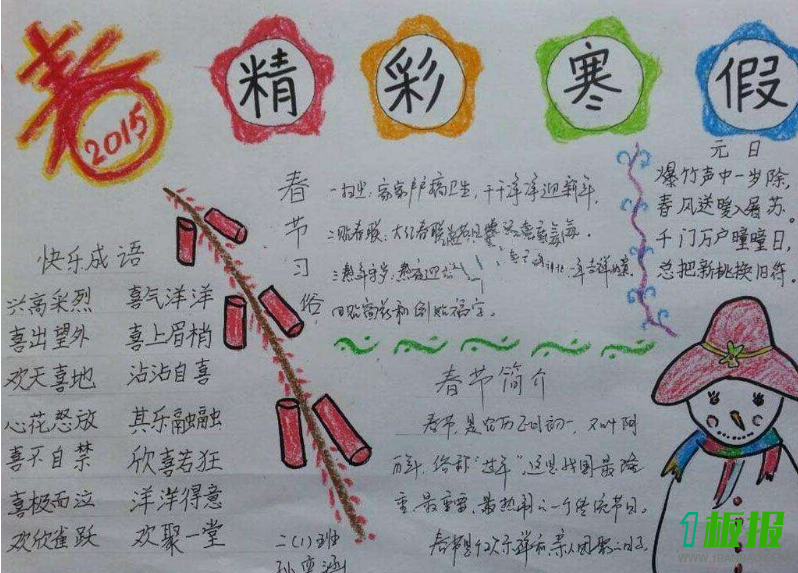 春
2015
精彩寒假
元日
爆竹声中一岁除,
春风送暖入屠苏。
千门万户曈曈日,
总把新桃换旧符。
春节习俗
一扫尘:家家户户搞卫生,干干净净迎新年。
二贴春联:大红春联
三熬年守岁,
四贴窗花和倒贴福字。
快乐成语
兴高采烈 喜气洋洋
喜出望外 喜上眉梢
欢天喜地 沾沾自喜
心花怒放 其乐融融
喜不自禁 欣喜若狂
喜极而泣 洋洋得意
欢欣雀跃 欢聚一堂
春节简介
春节,是农历正月初一,又叫阴
历年,俗称"过年",这是我国最隆
重、最热闹的一个传统节日。
春节是个欢乐祥和、亲人团聚的日子
二(1)班
1板报